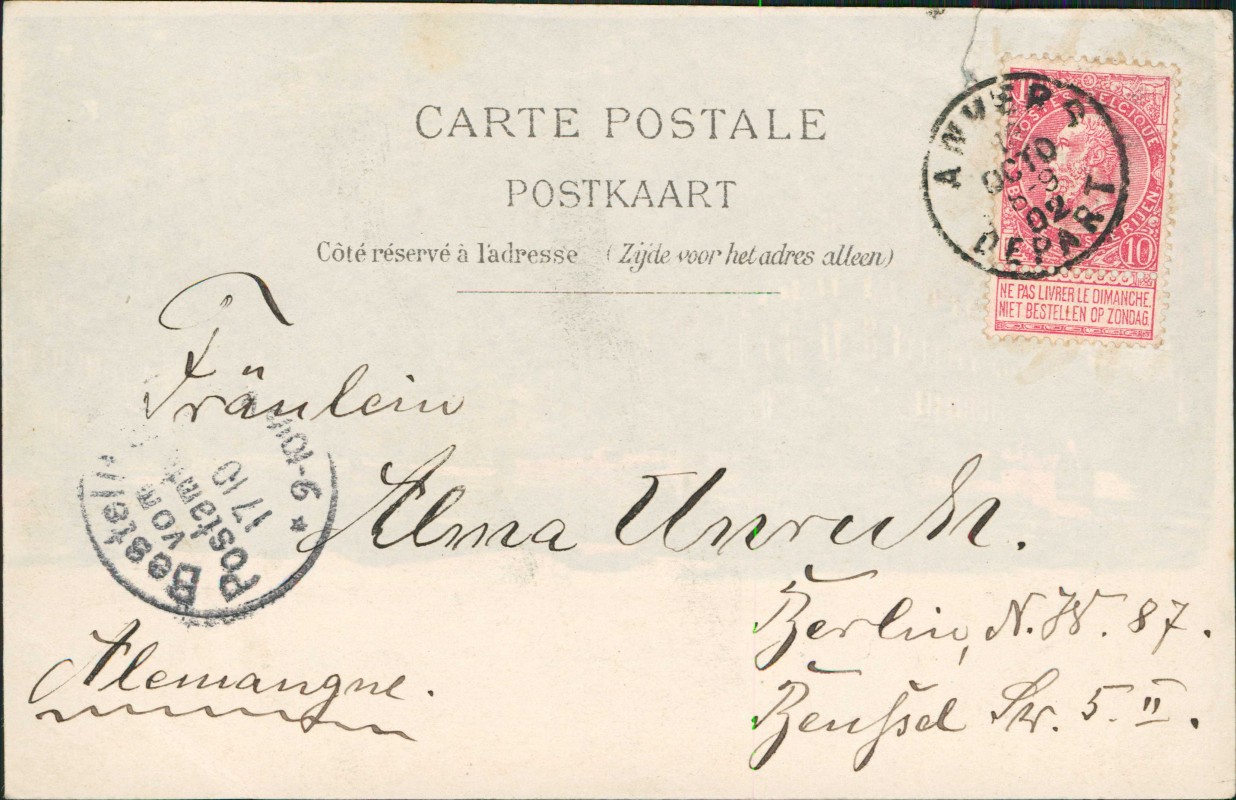 CARTE POSTALE
POSTKAART
Côté réservé à l'adresse (Zijde voor het adres alleen)
ANVERS
OCT 10
8-9
02
DEPART
POSTES BELGIQUE
10
NE PAS LIVRER LE DIMANCHE.
NIET BESTELLEN OP ZONDAG.
Fräulein
Alma Unruh.
Berlin, N.W. 87.
Beussel Str. 5. II.
Alemangne.
Bestellt
vom
Postamte
17 10
9-10